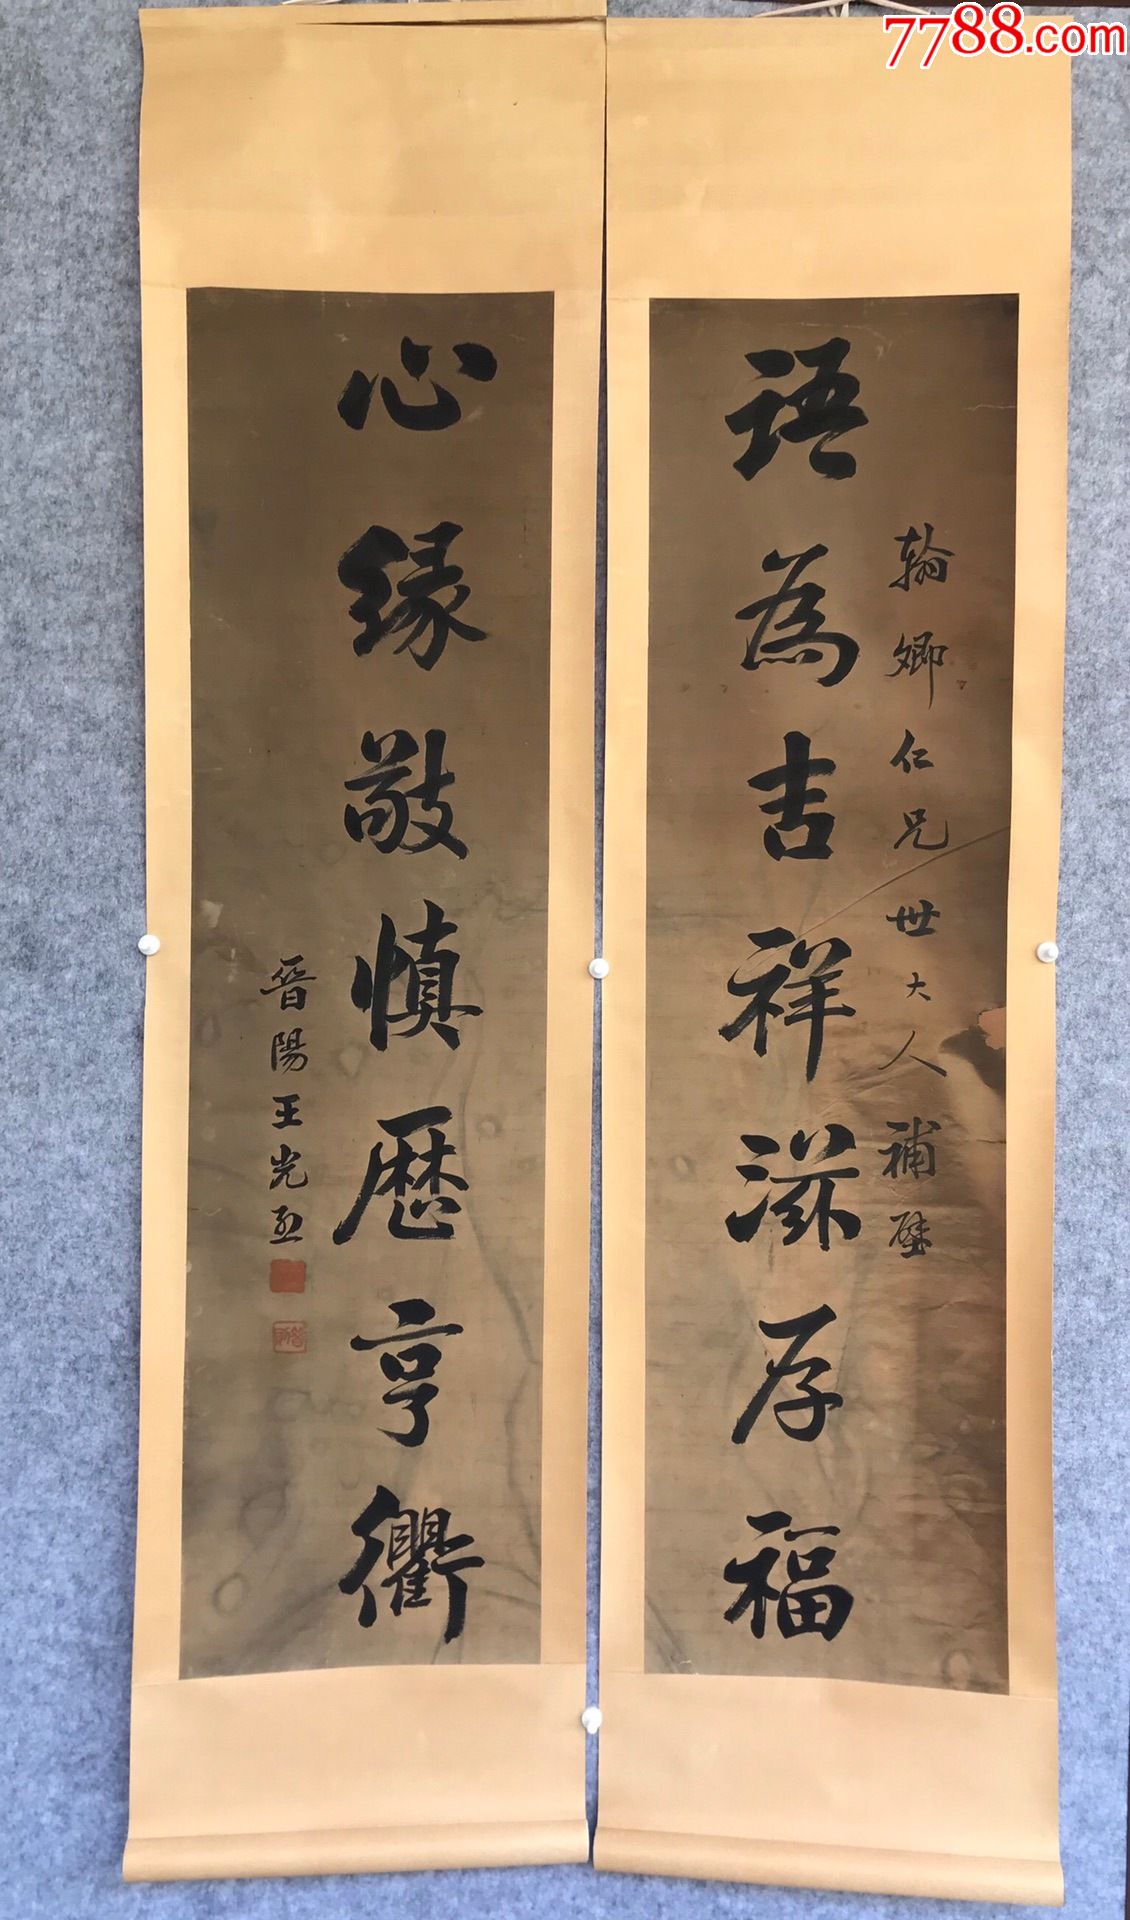 7788.com
翰卿仁兄世大人補壁
語為吉祥滋厚福
心緣敬慎歷亨衢
晉陽王光